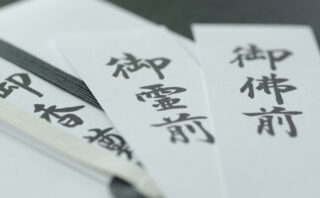 御佛前
御霊前
御香